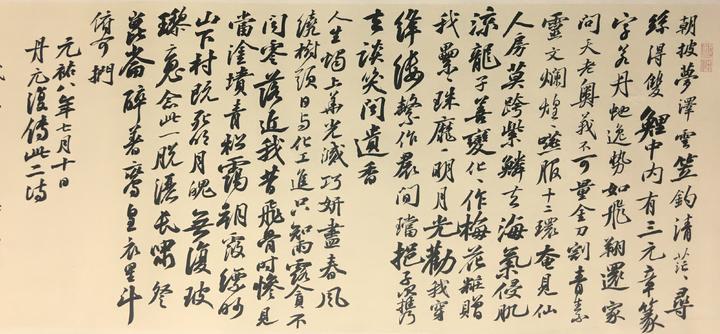 朝披夢澤雲笠釣清茫々尋
絲得雙鯉中內有三元章篆
字若丹蛇逸勢如飛翔還家
問天老奧義不可量金刀割青素
靈文爛煌々嚥服十二環奄見仙
人房莫跨紫鱗去海氣侵肌
涼龍子善變化々作梅花粧贈
我纍々珠靡々明月光勸我穿
絳縷繫作裙間璫挹子以攜
去談笑聞遺香
人生燭上華光滅巧妍盡春風
繞樹頭日與化工進只知雨露貪不
聞零落近我昔飛骨時慘見
當塗墳青松靄朝霞縹緲
山下村既死明月魄無復玻
瓈魂念此一脫灑長嘯登
崑崙醉著鸞皇衣星斗
俯可捫
元祐八年七月十日
丹元復傳此二詩